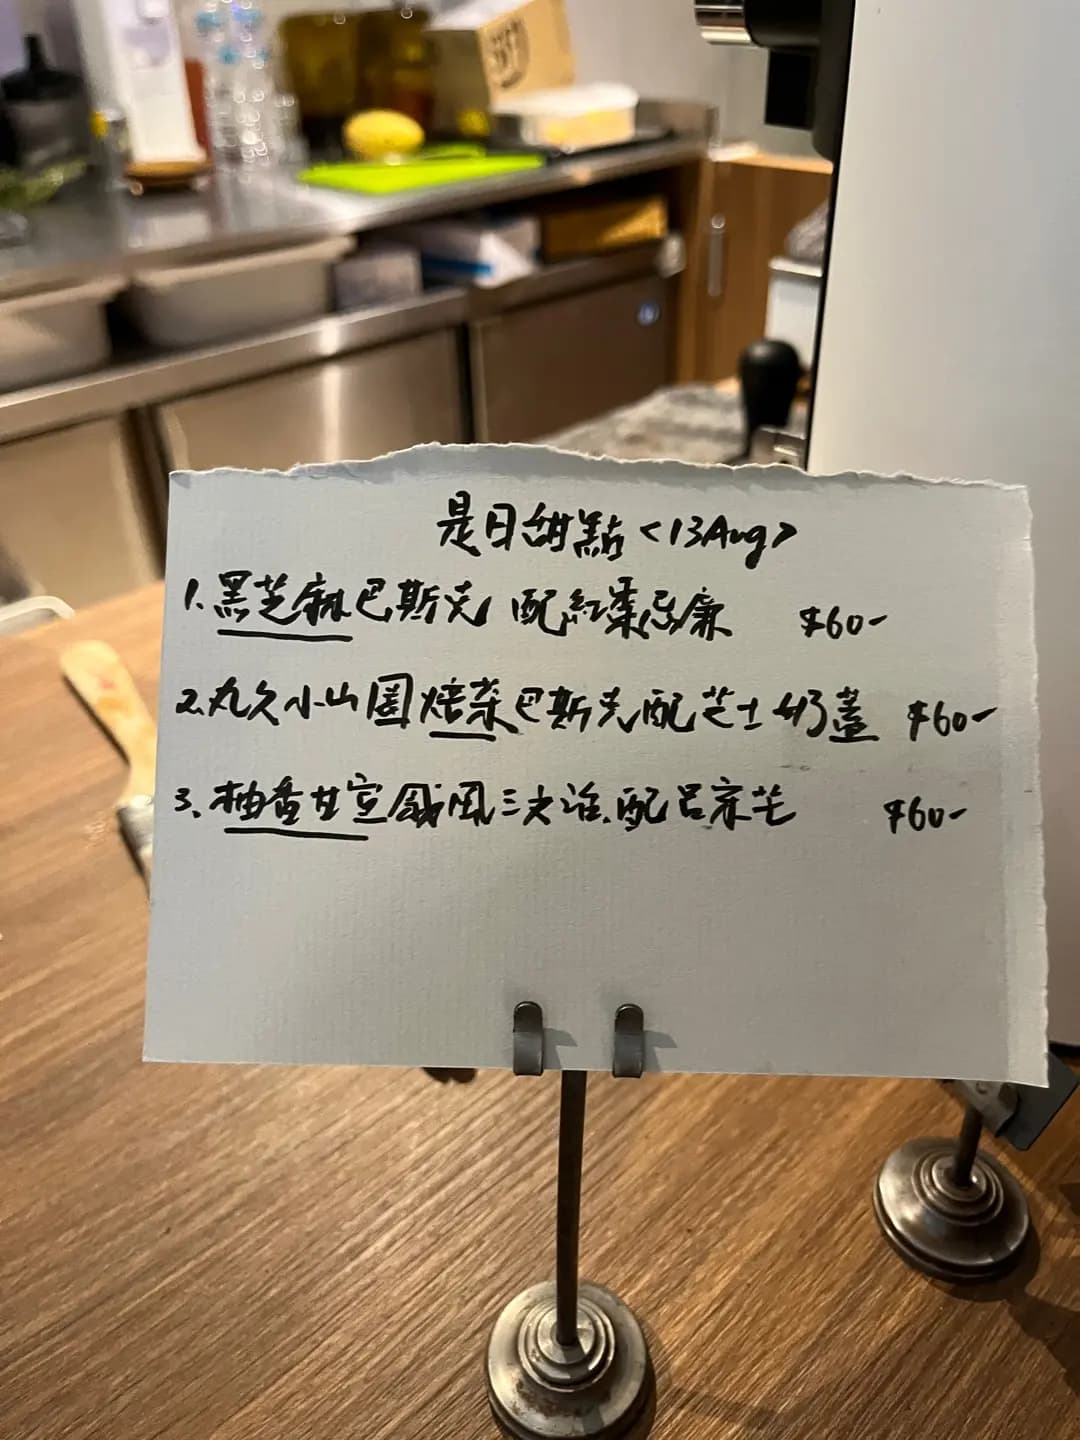 是日甜點 <13Aug>
1. 黑芝麻巴斯克 配紅棗忌廉 $60-
2. 丸久小山園焙茶巴斯克配芝士奶蓋 $60-
3. 柚香甘笋戚風三文治.配呂宋芒 $60-